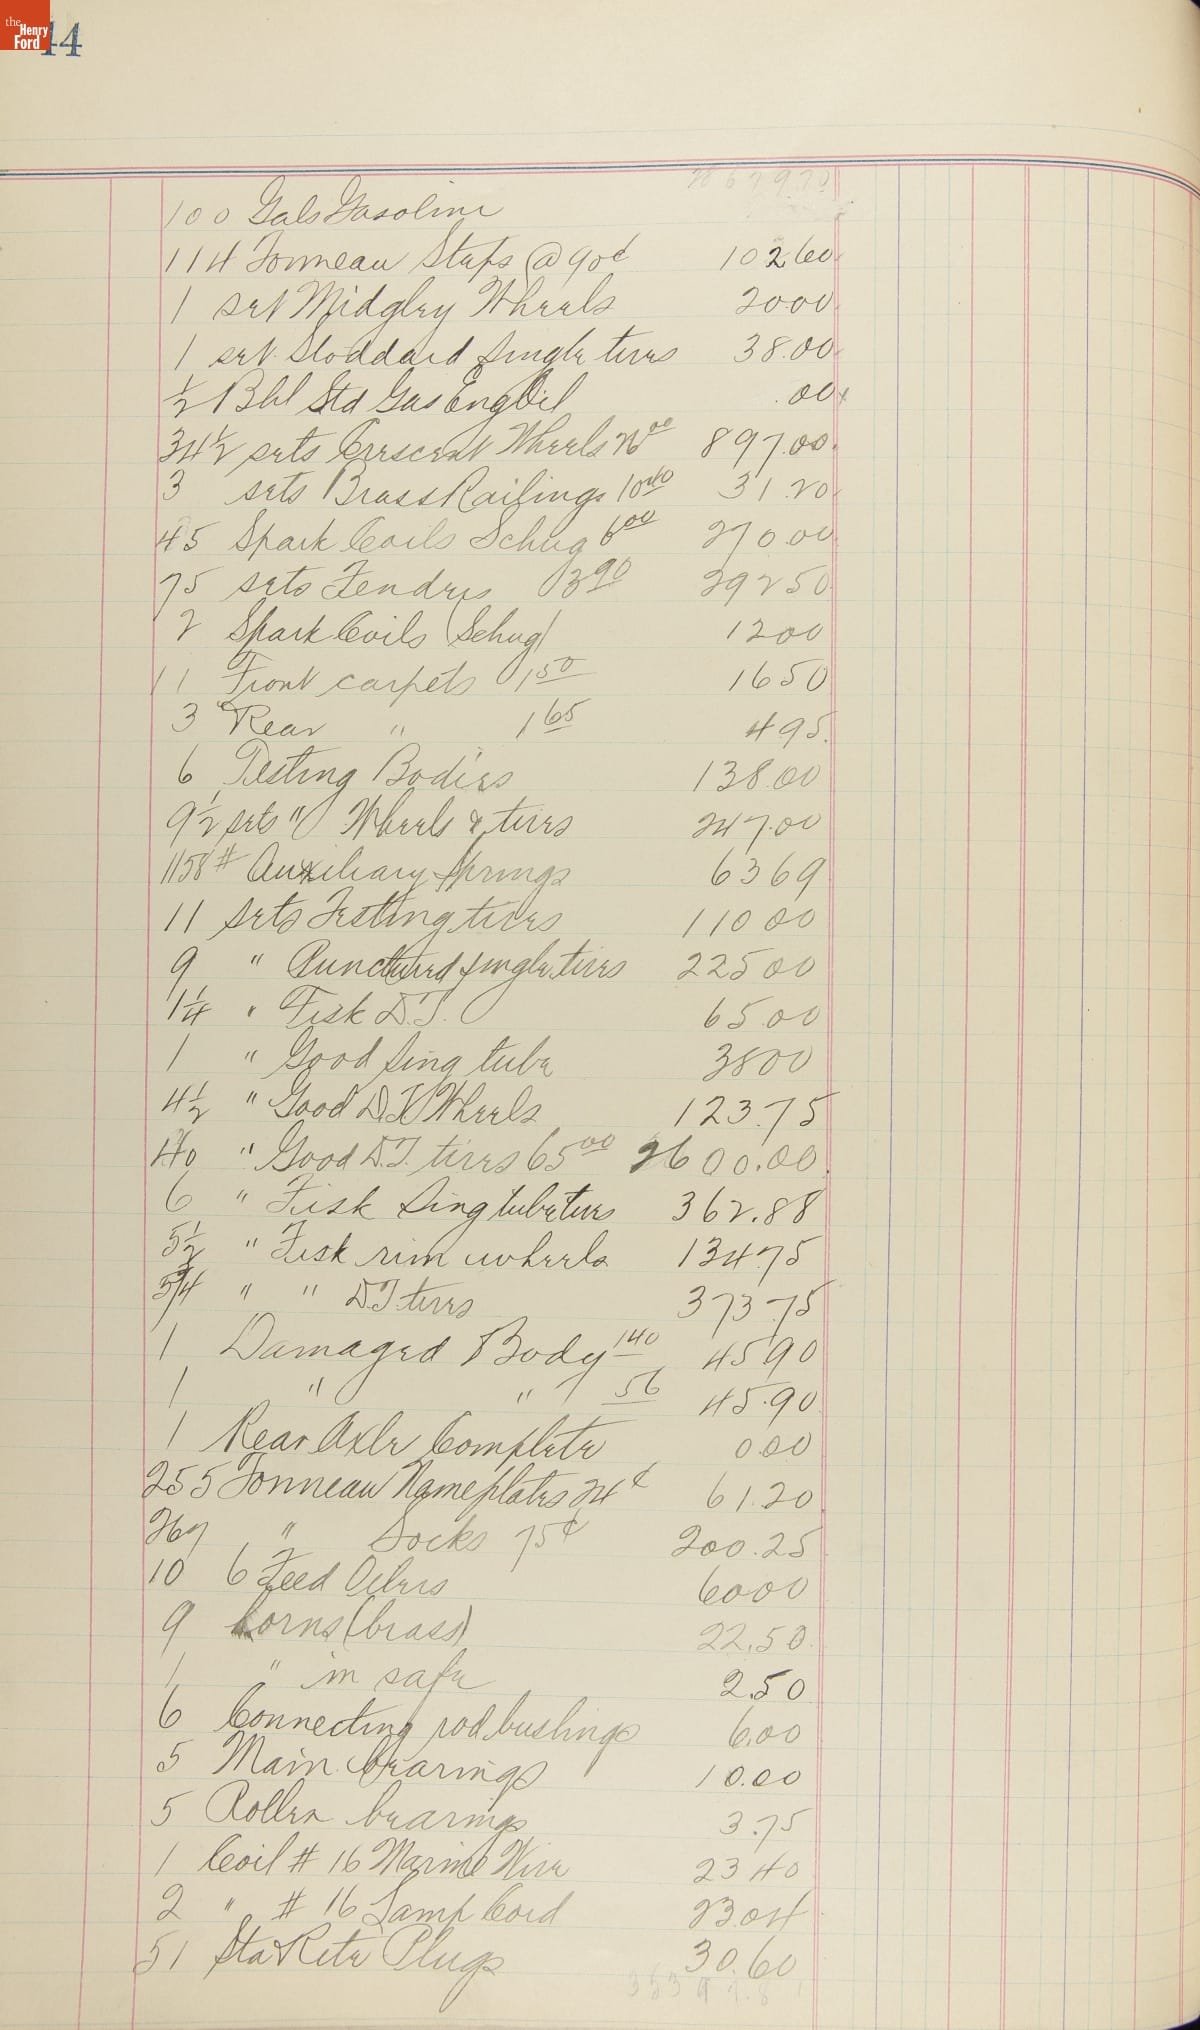 the Henry Ford
44
28679.70
100 Gals Gasoline
114 Tonneau Steps @ 90¢ 102.60
1 set Midgley Wheels 20.00
1 set Stoddard Single tires 38.00
½ Bbl Std Gas Eng Oil .00
34½ sets Crescent Wheels 26⁰⁰ 897.00
3 sets Brass Railings 10⁴⁰ 31.20
45 Spark Coils Schug 6⁰⁰ 270.00
75 sets Fenders 3⁹⁰ 292 50
2 Spark Coils (Schug) 12 00
11 Front carpets 1⁵⁰ 16 50
3 Rear " 1⁶⁵ 4.95
6 Testing Bodies 138.00
9½ sets " Wheels & tires 247.00
1158 # Auxiliary Springs 63 69
11 sets Testing tires 110 00
9 " Punctured single tires 225 00
1¼ " Fisk D.T. 65.00
1 " Good Sing tube 38 00
4½ " Good D.T. Wheels 123.75
40 " Good D.T. tires 65⁰⁰ 2600.00
6 " Fisk Sing tube tires 362.88
5½ " Fisk rim wheels 134.75
5¾ " " D.T. tires 373.75
1 Damaged Body 140 45 90
1 " " 56 45.90
1 Rear Axle Complete 0.00
255 Tonneau Nameplates 24¢ 61.20
267 " Socks 75¢ 200.25
10 6 Feed Oilers 60 00
9 horns (brass) 22.50
1 " in safe 2.50
6 Connecting rod bushings 6.00
5 Main bearings 10.00
5 Roller bearings 3.75
1 Coil # 16 Marine Wire 23 40
2 " # 16 Lamp Cord 23.04
51 Sta Rite Plugs 30.60